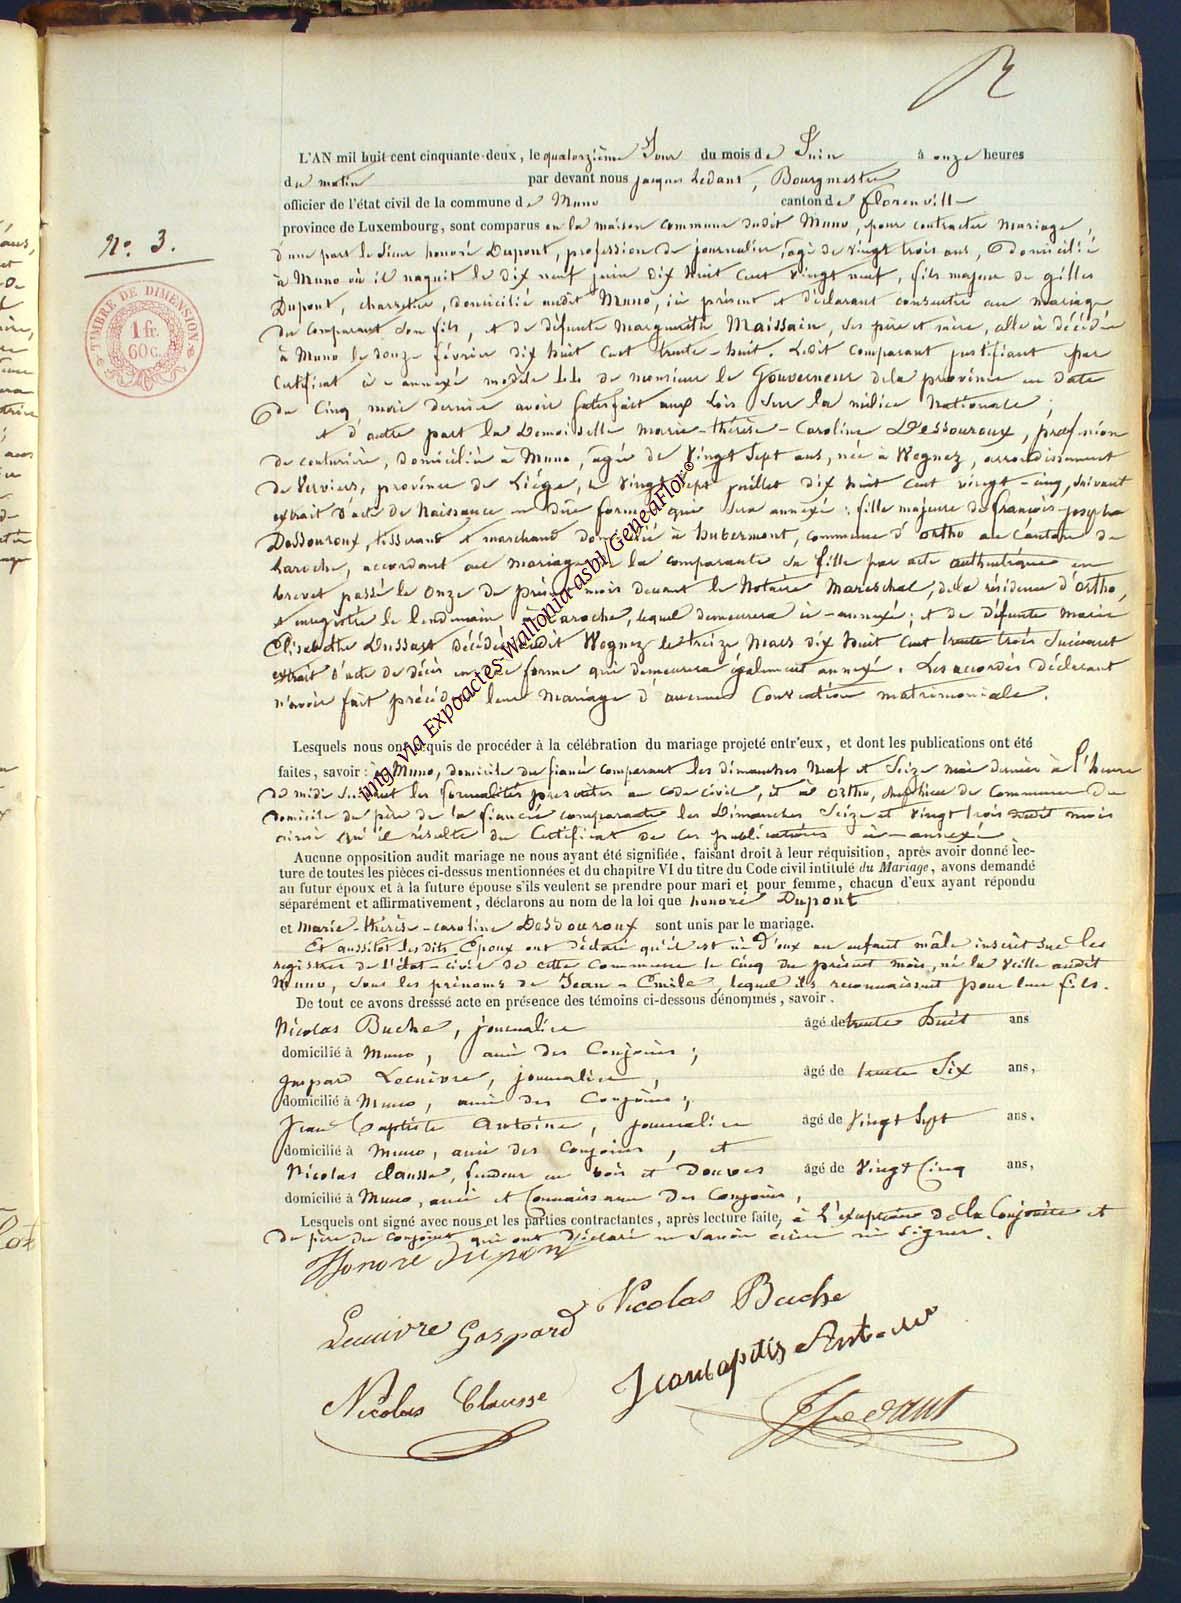 N.o 3.
TIMBRE DE DIMENSION
1 fr.
60 c.
L'AN mil huit cent cinquante-deux, le quatorzième Jour du mois de Juin à onze heures
du matin par devant nous Jacques Ledant, Bourgmestre
officier de l'état civil de la commune de Muno canton de florenville
province de Luxembourg, sont comparus en la maison commune dudit Muno, pour contracter mariage,
d'une part le Sieur honoré Dupont, profession de journalier, âgé de vingt trois ans, Domicilié
à Muno où il naquit le dix neuf juin dix huit cent vingt neuf, fils majeur de gilles
Dupont, charretier, domicilié audit Muno, ici présent et déclarant consentir au mariage
du comparant son fils, et de défunte Marguerite Maissain, ses père et mère, elle ici décédée
à Muno le douze février dix huit cent trente-huit. Ledit comparant justifiant par
Certificat ci-annexé modèle LL de monsieur le Gouverneur de la province en date
du Cinq mars dernier avoir satisfait aux lois sur la milice Nationale ;
et d'autre part la Demoiselle Marie-thérèse-Caroline Dessouroux, profession
de couturière, domiciliée à Muno, âgée de Vingt Sept ans, née à Wegnez, arrondissement
de Verviers, province de Liége, le Vingt Sept juillet dix huit cent vingt-cinq, suivant
extrait d'acte de Naissance en due forme qui sera annexé ; fille majeure de françois-joseph
Dessouroux, tisserand et marchand domicilié à hubermont, commune d'ortho au Canton de
Laroche, accordant au mariage de la comparante sa fille par acte authentique en
brevet passé le onze du présent mois devant le Notaire Mareschal, de la résidence d'Ortho,
et enregistré le lendemain à Laroche, lequel demeurera ci-annexé ; et de défunte Marie
Elisabethe Dussart décédée audit Wegnez le treize Mars dix huit cent trente trois suivant
extrait d'acte de décès en due forme qui demeurera également annexé. Les accordés déclarant
n'avoir fait précéder leur mariage d'aucune Convention matrimoniale.
Lesquels nous ont requis de procéder à la célébration du mariage projeté entr'eux, et dont les publications ont été
faites, savoir : à Muno, domicile du fiancé comparant les dimanches Neuf et Seize mai dernier à l'heure
de midi suivant les formalités prescrites au code civil, et à Ortho, chef lieu de Commune du
domicile du père de la fiancée comparante les Dimanches Seize et Vingt trois dudit mois
ainsi qu'il résulte du Certificat de ces publications ci-annexé.
Aucune opposition audit mariage ne nous ayant été signifiée, faisant droit à leur réquisition, après avoir donné lec-
ture de toutes les pièces ci-dessus mentionnées et du chapitre VI du titre du Code civil intitulé du Mariage, avons demandé
au futur époux et à la future épouse s'ils veulent se prendre pour mari et pour femme, chacun d'eux ayant répondu
séparément et affirmativement, déclarons au nom de la loi que honoré Dupont
et Marie-thérèse-caroline Dessouroux sont unis par le mariage.
Et aussitôt lesdits Epoux ont déclaré qu'il est né d'eux un enfant mâle inscrit sur les
registres de l'état-civil de cette commune le cinq du présent mois, né la veille audit
Muno, sous les prénoms de Jean-Emile, lequel ils reconnaissent pour leur fils.
De tout ce avons dresssé acte en présence des témoins ci-dessous dénommés, savoir.
Nicolas Buche, journalier âgé de trente huit ans
domicilié à Muno, ami des Conjoints ;
gaspard Lecuivre, journalier, âgé de trente Six ans,
domicilié à Muno, ami des Conjoints ;
Jean Baptiste Antoine, journalier âgé de Vingt Sept ans.
domicilié à Muno, ami des Conjoints, et
Nicolas clausse, fendeur en bois et Douves âgé de Vingt Cinq ans,
domicilié à Muno, ami et Connaissance des Conjoints,
Lesquels ont signé avec nous et les parties contractantes, après lecture faite, à l'exception de la Conjointe et
du père du conjoint qui ont déclaré ne savoir écrire ni signer.
Honoré dupont
Nicolas Buche
Lecuivre Gaspard
Jean bapitis Antoine
Nicolas Clausse
JLedant
img via Expoactes-Wallonia-asbl/GeneaFlor©